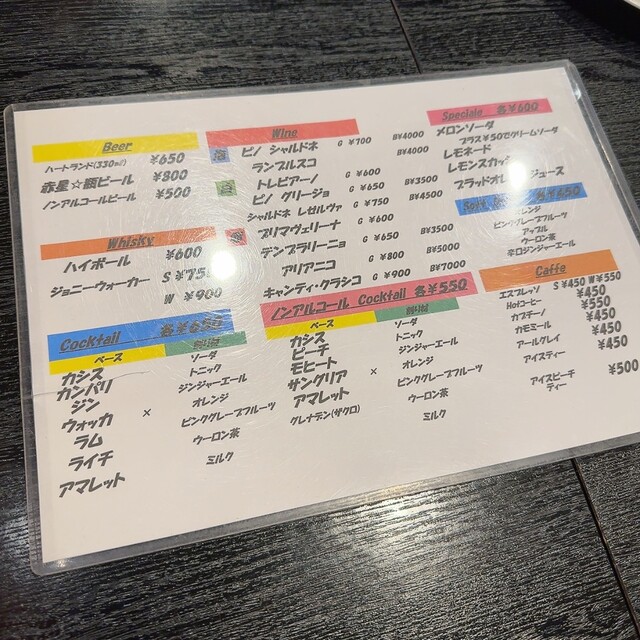 Beer
ハートランド(330ml) ¥650
赤星☆瓶ビール ¥800
ノンアルコールビール ¥500
Whisky
ハイボール ¥600
ジョニーウォーカー S ¥750
W ¥900
Cocktail 各¥650
ベース 割り物
カシス
カンパリ
ジン
ウォッカ
ラム
ライチ
アマレット
×
ソーダ
トニック
ジンジャーエール
オレンジ
ピンクグレープフルーツ
ウーロン茶
ミルク
Wine
泡 ピノ シャルドネ G ¥700 B¥4000
ランブルスコ B¥4000
白 トレビアーノ G ¥600
ピノ グリージョ G ¥650 B¥3500
シャルドネ レゼルヴァ G ¥750 B¥4500
プリマヴェリーナ G ¥600
テンプラリーニョ G ¥650 B¥3500
アリアニコ G ¥800 B¥5000
キャンティ・クラシコ G ¥900 B¥7000
ノンアルコール Cocktail 各¥550
ベース 割り物
カシス
ピーチ
モヒート
サングリア
アマレット
グレナデン(ザクロ)
×
ソーダ
トニック
ジンジャーエール
オレンジ
ピンクグレープフルーツ
ウーロン茶
ミルク
Speciale 各¥600
メロンソーダ
プラス¥50でクリームソーダ
レモネード
レモンスカッシュ
ブラッドオレンジジュース
¥450
オレンジ
ピンクグレープフルーツ
アップル
ウーロン茶
辛口ジンジャーエール
Caffe
エスプレッソ S ¥450 W ¥550
Hotコーヒー ¥450
カプチーノ ¥550
カモミール ¥450
アールグレイ ¥450
アイスティー ¥450
アイスピーチティー ¥500